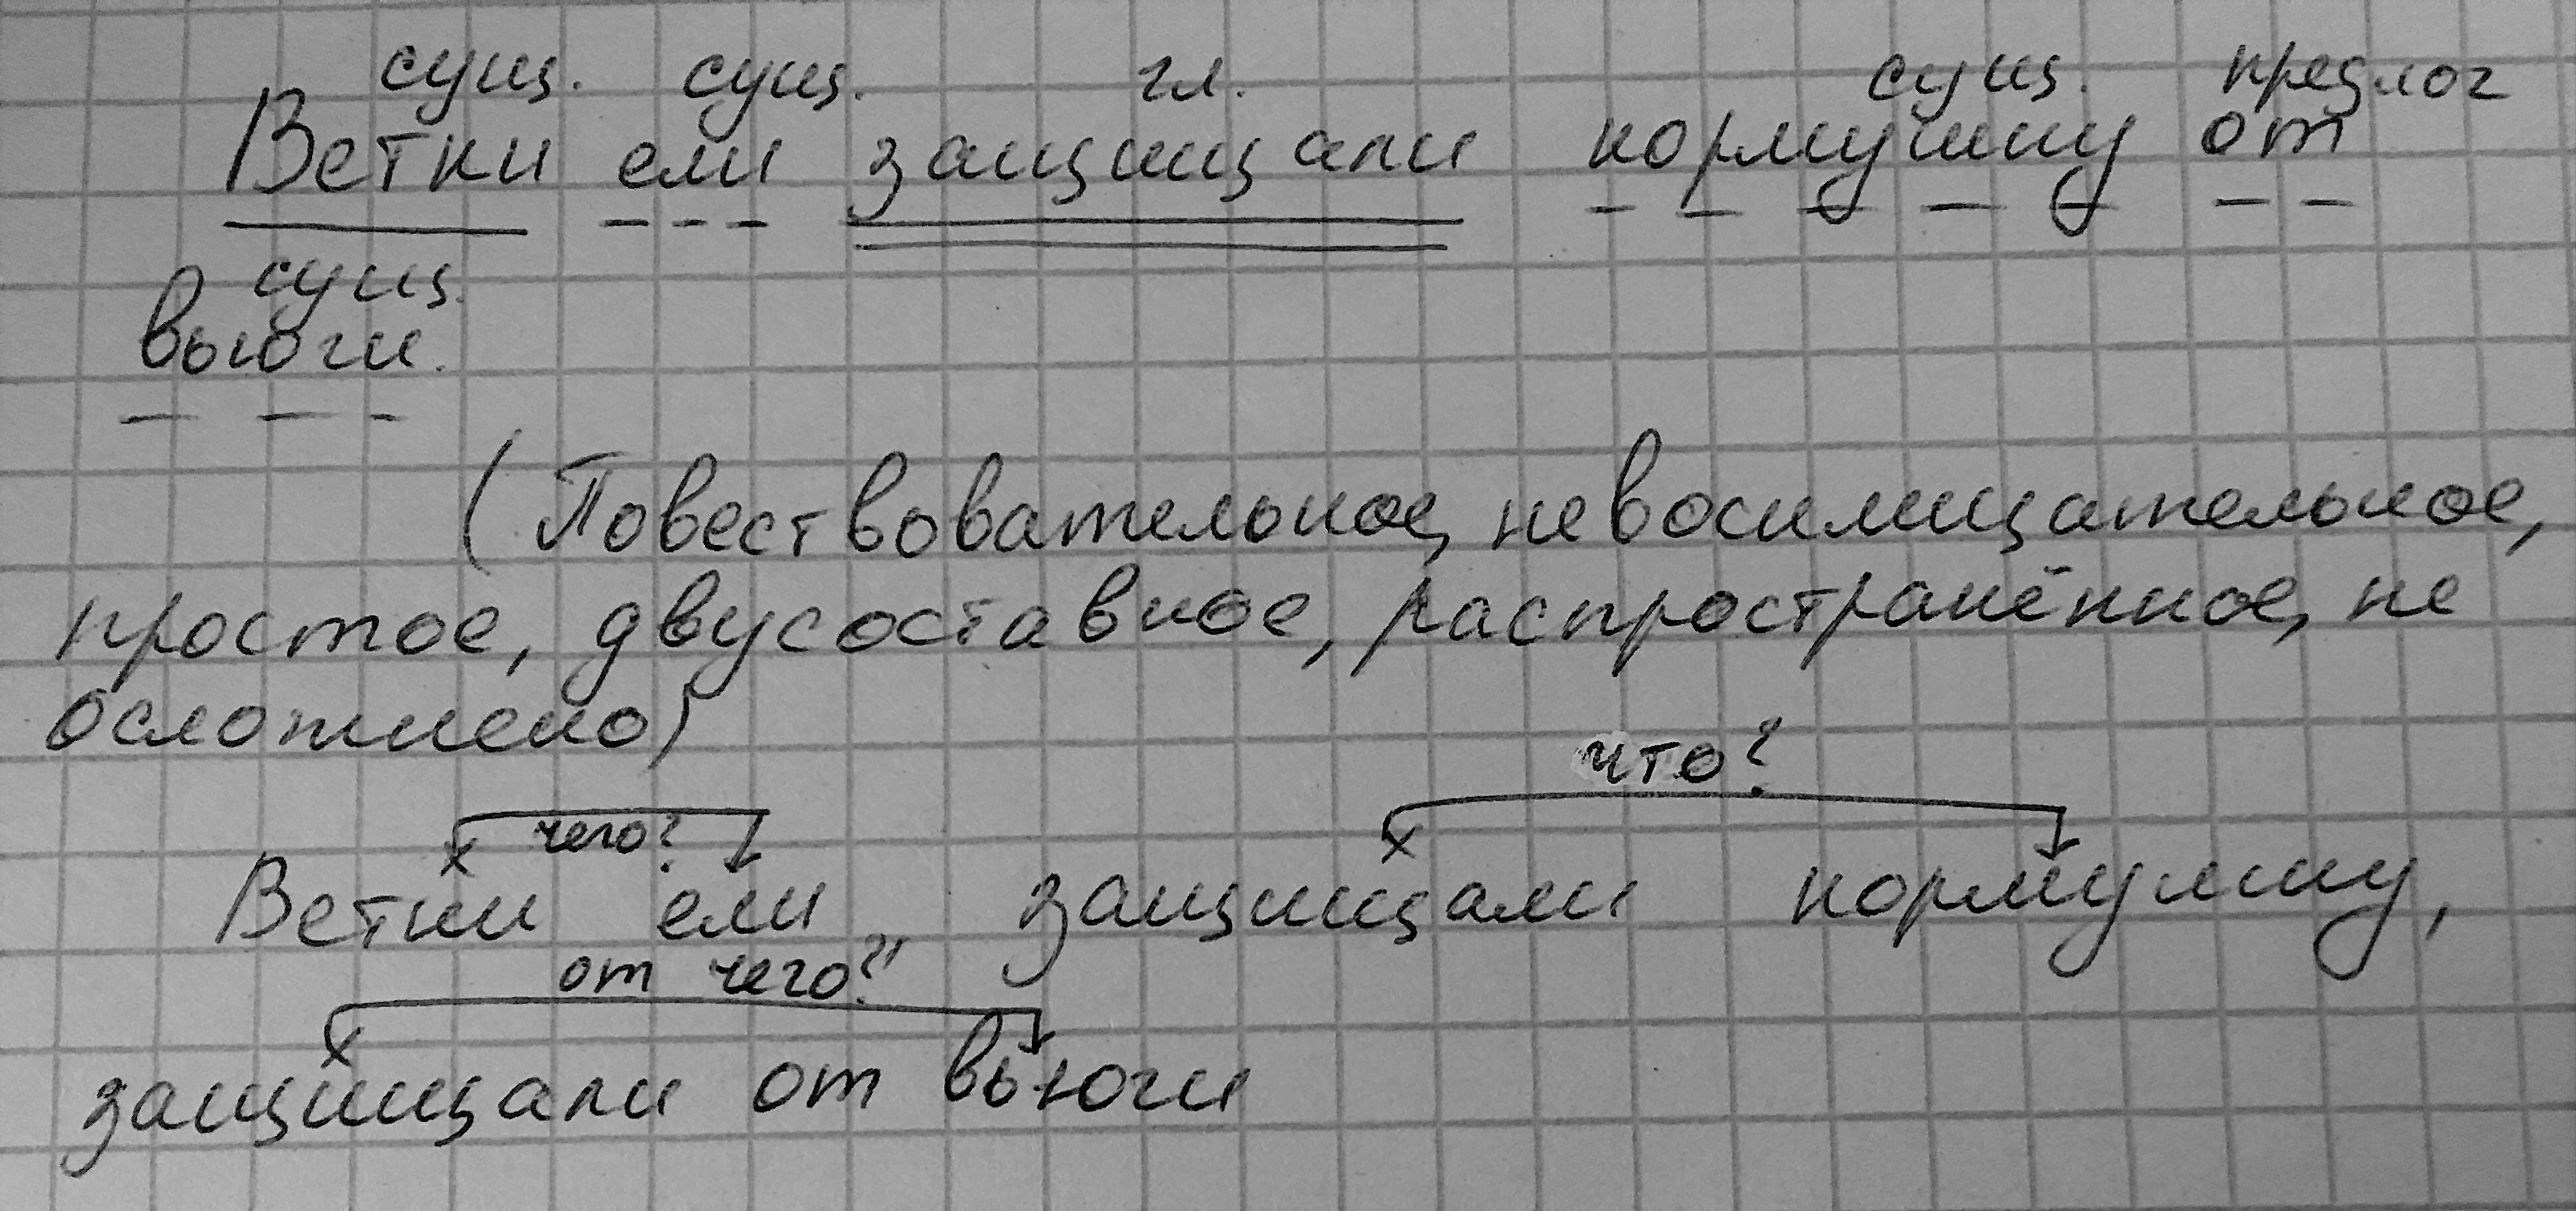 сущ. сущ. гл. сущ. предлог
Ветки ели защищали кормушку от
сущ.
вьюги.
(Повествовательное, невосклицательное,
простое, двусоставное, распространённое, не
осложнено)
что?
чего?
Ветки ели, защищали кормушку,
от чего?
защищали от вьюги